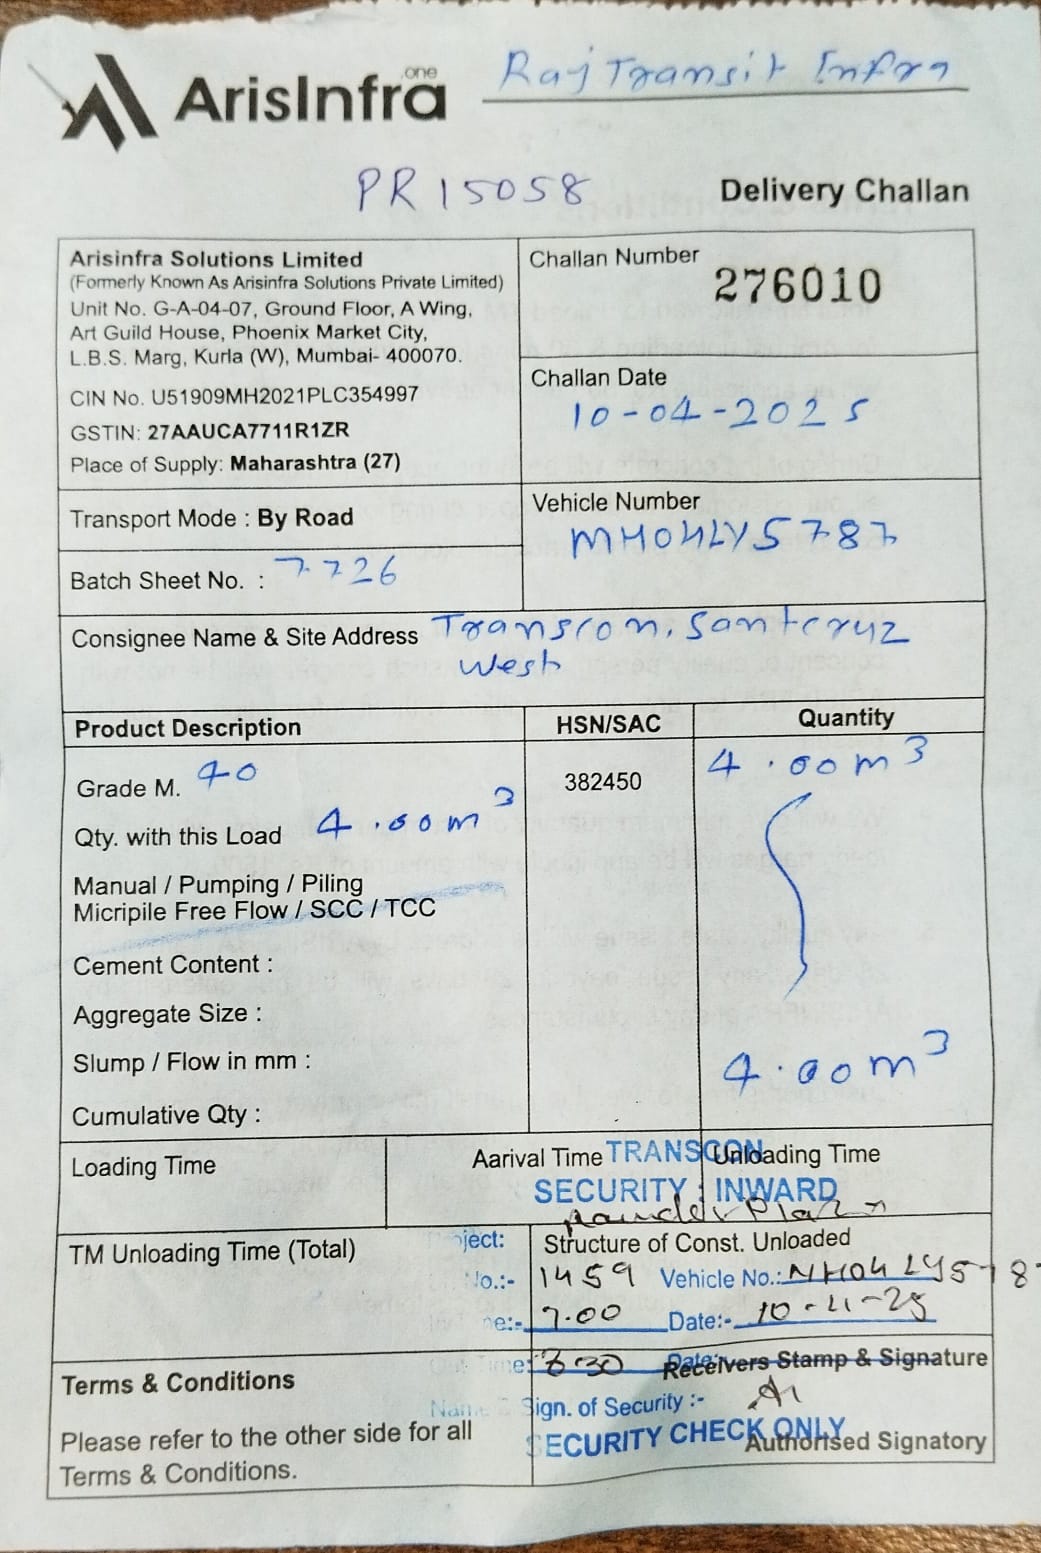 ArisInfra .one
Raj Transit Infra
PR 15058
Delivery Challan
Arisinfra Solutions Limited
(Formerly Known As Arisinfra Solutions Private Limited)
Unit No. G-A-04-07, Ground Floor, A Wing,
Art Guild House, Phoenix Market City,
L.B.S. Marg, Kurla (W), Mumbai- 400070.
CIN No. U51909MH2021PLC354997
GSTIN: 27AAUCA7711R1ZR
Place of Supply: Maharashtra (27)
Challan Number
276010
Challan Date
10-04-2025
Transport Mode : By Road
Vehicle Number
MH04LY5787
Batch Sheet No. : 7726
Consignee Name & Site Address Transcon, Santcruz
West
Product Description HSN/SAC Quantity
Grade M. 40 382450 4.00m³
Qty. with this Load 4.00m³
Manual / Pumping / Piling
Micripile Free Flow / SCC / TCC
Cement Content :
Aggregate Size :
Slump / Flow in mm :
4.00m³
Cumulative Qty :
Loading Time Aarival Time Unloading Time
TRANSCON
SECURITY : INWARD
TM Unloading Time (Total)
Structure of Const. Unloaded
1459 Vehicle No.: MH04LY5787
7.00 Date:-
Time: 8.30 Date:
Receivers Stamp & Signature
Sign. of Security :-
SECURITY CHECK ONLY
Authorised Signatory
Terms & Conditions
Please refer to the other side for all
Terms & Conditions.